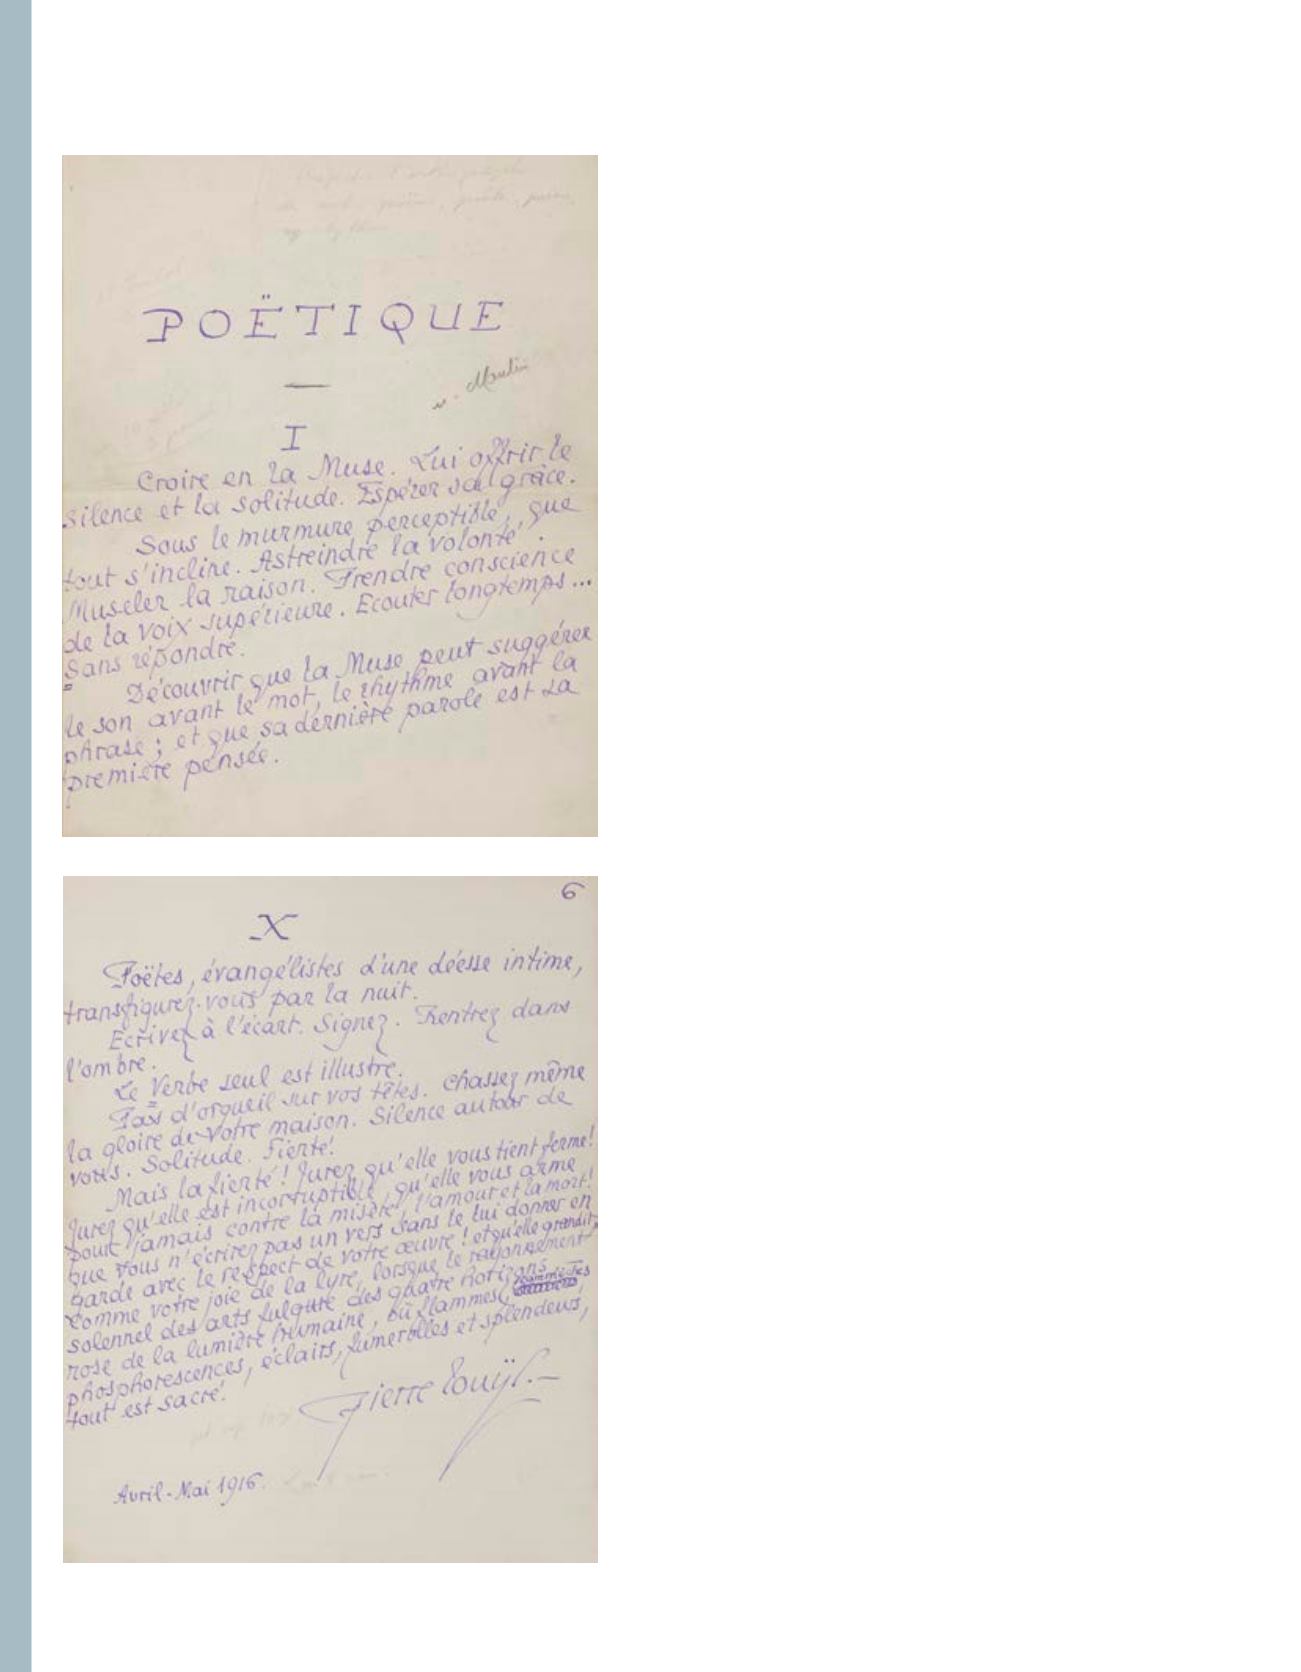 POËTIQUE
I
Croire en la Muse. Lui offrir le
silence et la solitude. Espérer sa grâce.
Sous le murmure perceptible, que
tout s'incline. Astreindre la volonté.
Museler la raison. Prendre conscience
de la voix supérieure. Ecouter longtemps...
Sans répondre.
Découvrir que la Muse peut suggérer
le son avant le mot, le rhythme avant la
phrase ; et que sa dernière parole est La
première pensée.
6
X
Poëtes, évangélistes d'une déesse intime,
transfigurez-vous par la nuit.
Ecrivez à l'écart. Signez. Rentrez dans
l'ombre.
Le Verbe seul est illustre.
Pas d'orgueil sur vos têtes. Chassez même
la gloire de votre maison. Silence autour de
vous. Solitude. Fierté!
Mais la fierté! Jurez qu'elle vous tient ferme!
Jurez qu'elle est incorruptible, qu'elle vous arme
pour jamais contre la misère, l'amour et la mort!
que vous n'écrirez pas un vers sans le lui donner en
garde avec le respect de votre œuvre! et qu'elle grandit,
comme votre joie de la lyre, lorsque le rayonnement
solennel des arts fulgure des quatre horizons
rose de la lumière humaine, où flammes,
phosphorescences, éclairs, fumerolles et splendeurs,
tout est sacré!
Pierre Louÿs.
Avril-Mai 1916.